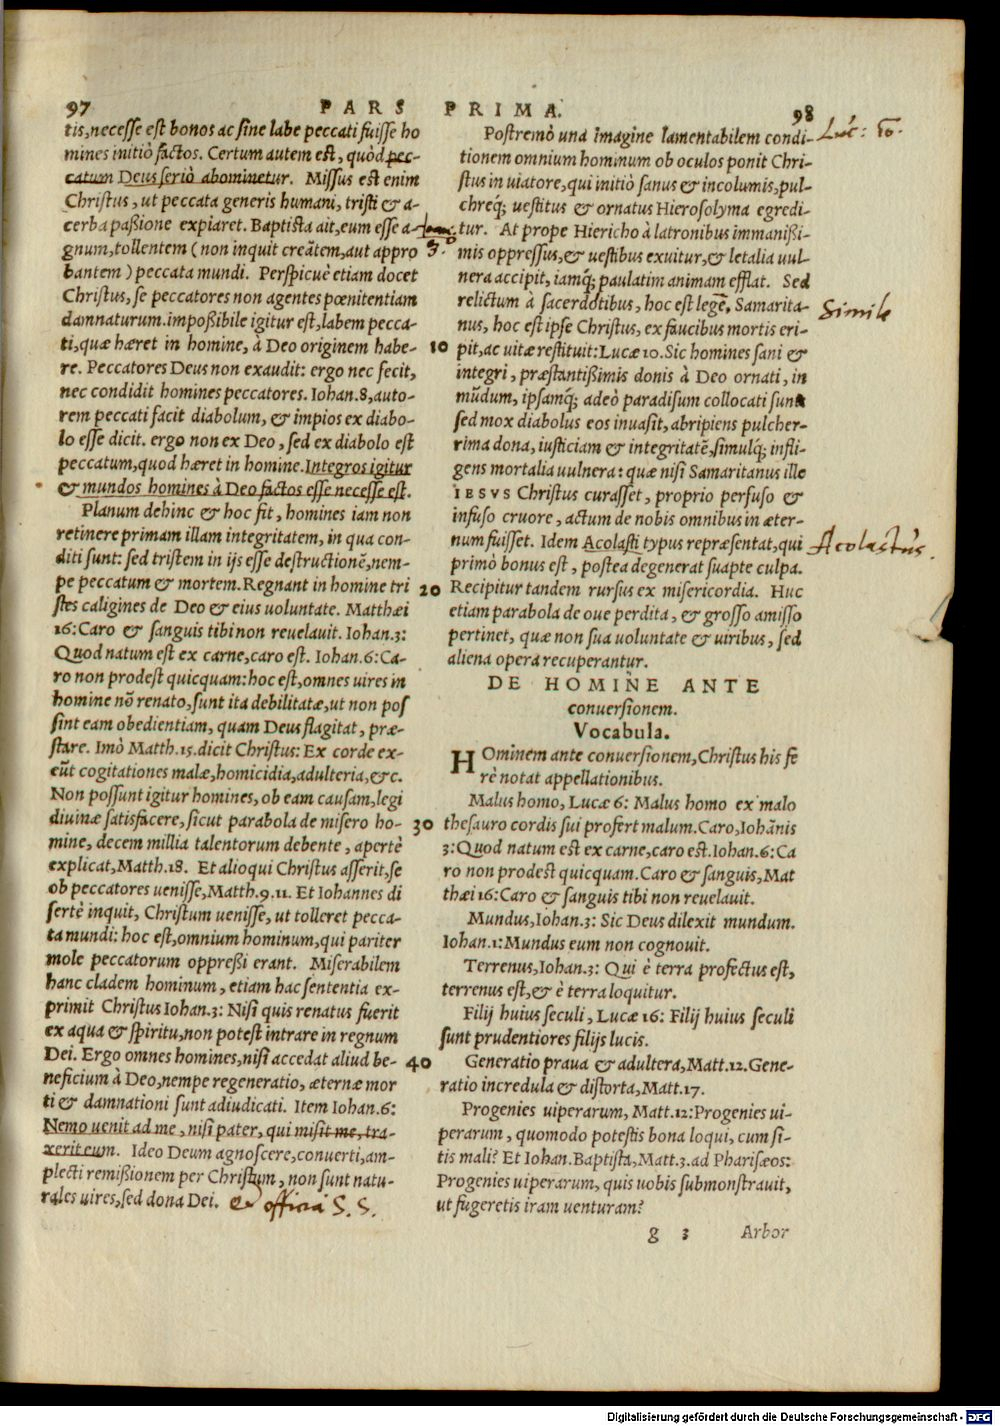 97 PARS PRIMA. 98
tis, necesse est bonos ac sine labe peccati fuisse ho
mines initiò factos. Certum autem est, quòd pec-
catum Deus seriò abominetur. Missus est enim
Christus, ut peccata generis humani, tristi & a-
cerba paßione expiaret. Baptista ait, eum esse a-
gnum, tollentem (non inquit creãtem, aut appro
bantem) peccata mundi. Perspicuè etiam docet
Christus, se peccatores non agentes pœnitentiam
damnaturum. impoßibile igitur est, labem pecca-
ti, quæ hæret in homine, à Deo originem habe-
re. Peccatores Deus non exaudit: ergo nec fecit,
nec condidit homines peccatores. Iohan. 8, auto-
rem peccati facit diabolum, & impios ex diabo-
lo esse dicit. ergo non ex Deo, sed ex diabolo est
peccatum, quod hæret in homine. Integros igitur
& mundos homines à Deo factos esse necesse est.
Planum dehinc & hoc fit, homines iam non
retinere primam illam integritatem, in qua con-
diti sunt: sed tristem in ijs esse destructionẽ, nem-
pe peccatum & mortem. Regnant in homine tri
stes caligines de Deo & eius uoluntate. Matthæi
16: Caro & sanguis tibi non reuelauit. Iohan. 3:
Quod natum est ex carne, caro est. Iohan. 6: Ca-
ro non prodest quicquam: hoc est, omnes uires in
homine nõ renato, sunt ita debilitatæ, ut non pos
sint eam obedientiam, quam Deus flagitat, præ-
stare. Imò Matth. 15. dicit Christus: Ex corde ex-
eũt cogitationes malæ, homicidia, adulteria, &c.
Non possunt igitur homines, ob eam causam, legi
diuinæ satisfacere, sicut parabola de misero ho-
mine, decem millia talentorum debente, apertè
explicat, Matth. 18. Et alioqui Christus asserit, se
ob peccatores uenisse, Matth. 9. 11. Et Iohannes di
sertè inquit, Christum uenisse, ut tolleret pecca-
ta mundi: hoc est, omnium hominum, qui pariter
mole peccatorum oppreßi erant. Miserabilem
hanc cladem hominum, etiam hac sententia ex-
primit Christus Iohan. 3: Nisi quis renatus fuerit
ex aqua & spiritu, non potest intrare in regnum
Dei. Ergo omnes homines, nisi accedat aliud be-
neficium à Deo, nempe regeneratio, æternæ mor
ti & damnationi sunt adiudicati. Item Iohan. 6:
Nemo uenit ad me, nisi pater, qui misit me, tra-
xerit eum. Ideo Deum agnoscere, conuerti, am-
plecti remißionem per Christum, non sunt natu-
rales uires, sed dona Dei. & officia S. S.
3.
10
20
30
40
Postremò una imagine lamentabilem condi-
tionem omnium hominum ob oculos ponit Chri-
stus in uiatore, qui initiò sanus & incolumis, pul-
chreq; uestitus & ornatus Hierosolyma egredi-
tur. At prope Hiericho à latronibus immanißi-
mis oppressus, & uestibus exuitur, & letalia uul-
nera accipit, iamq; paulatim animam efflat. Sed
relictum à sacerdotibus, hoc est lege, Samarita-
nus, hoc est ipse Christus, ex faucibus mortis eri-
pit, ac uitæ restituit: Lucæ 10. Sic homines sani &
integri, præstantißimis donis à Deo ornati, in
mũdum, ipsamq; adeò paradisum collocati sunt
sed mox diabolus eos inuasit, abripiens pulcher-
rima dona, iusticiam & integritatẽ, simulq; infli-
gens mortalia uulnera: quæ nisi Samaritanus ille
IESVS Christus curasset, proprio perfuso &
infuso cruore, actum de nobis omnibus in æter-
num fuisset. Idem Acolasti typus repræsentat, qui
primò bonus est, postea degenerat suapte culpa.
Recipitur tandem rursus ex misericordia. Huc
etiam parabola de oue perdita, & grosso amisso
pertinet, quæ non sua uoluntate & uiribus, sed
aliena opera recuperantur.
DE HOMINE ANTE
conuersionem.
Vocabula.
HOminem ante conuersionem, Christus his fe
rè notat appellationibus.
Malus homo, Lucæ 6: Malus homo ex malo
thesauro cordis sui profert malum. Caro, Iohãnis
3: Quod natum est ex carne, caro est. Iohan. 6: Ca
ro non prodest quicquam. Caro & sanguis, Mat
thæi 16: Caro & sanguis tibi non reuelauit.
Mundus, Iohan. 3: Sic Deus dilexit mundum.
Iohan. 1: Mundus eum non cognouit.
Terrenus, Iohan. 3: Qui è terra profectus est,
terrenus est, & è terra loquitur.
Filij huius seculi, Lucæ 16: Filij huius seculi
sunt prudentiores filijs lucis.
Generatio praua & adultera, Matt. 12. Gene-
ratio incredula & distorta, Matt. 17.
Progenies uiperarum, Matt. 12: Progenies ui-
perarum, quomodo potestis bona loqui, cum si-
tis mali? Et Iohan. Baptista, Matt. 3. ad Pharisæos:
Progenies uiperarum, quis uobis submonstrauit,
ut fugeretis iram uenturam?
g 3 Arbor
Luc: 10.
Simile
Acolastus.
Digitalisierung gefördert durch die Deutsche Forschungsgemeinschaft - DFG